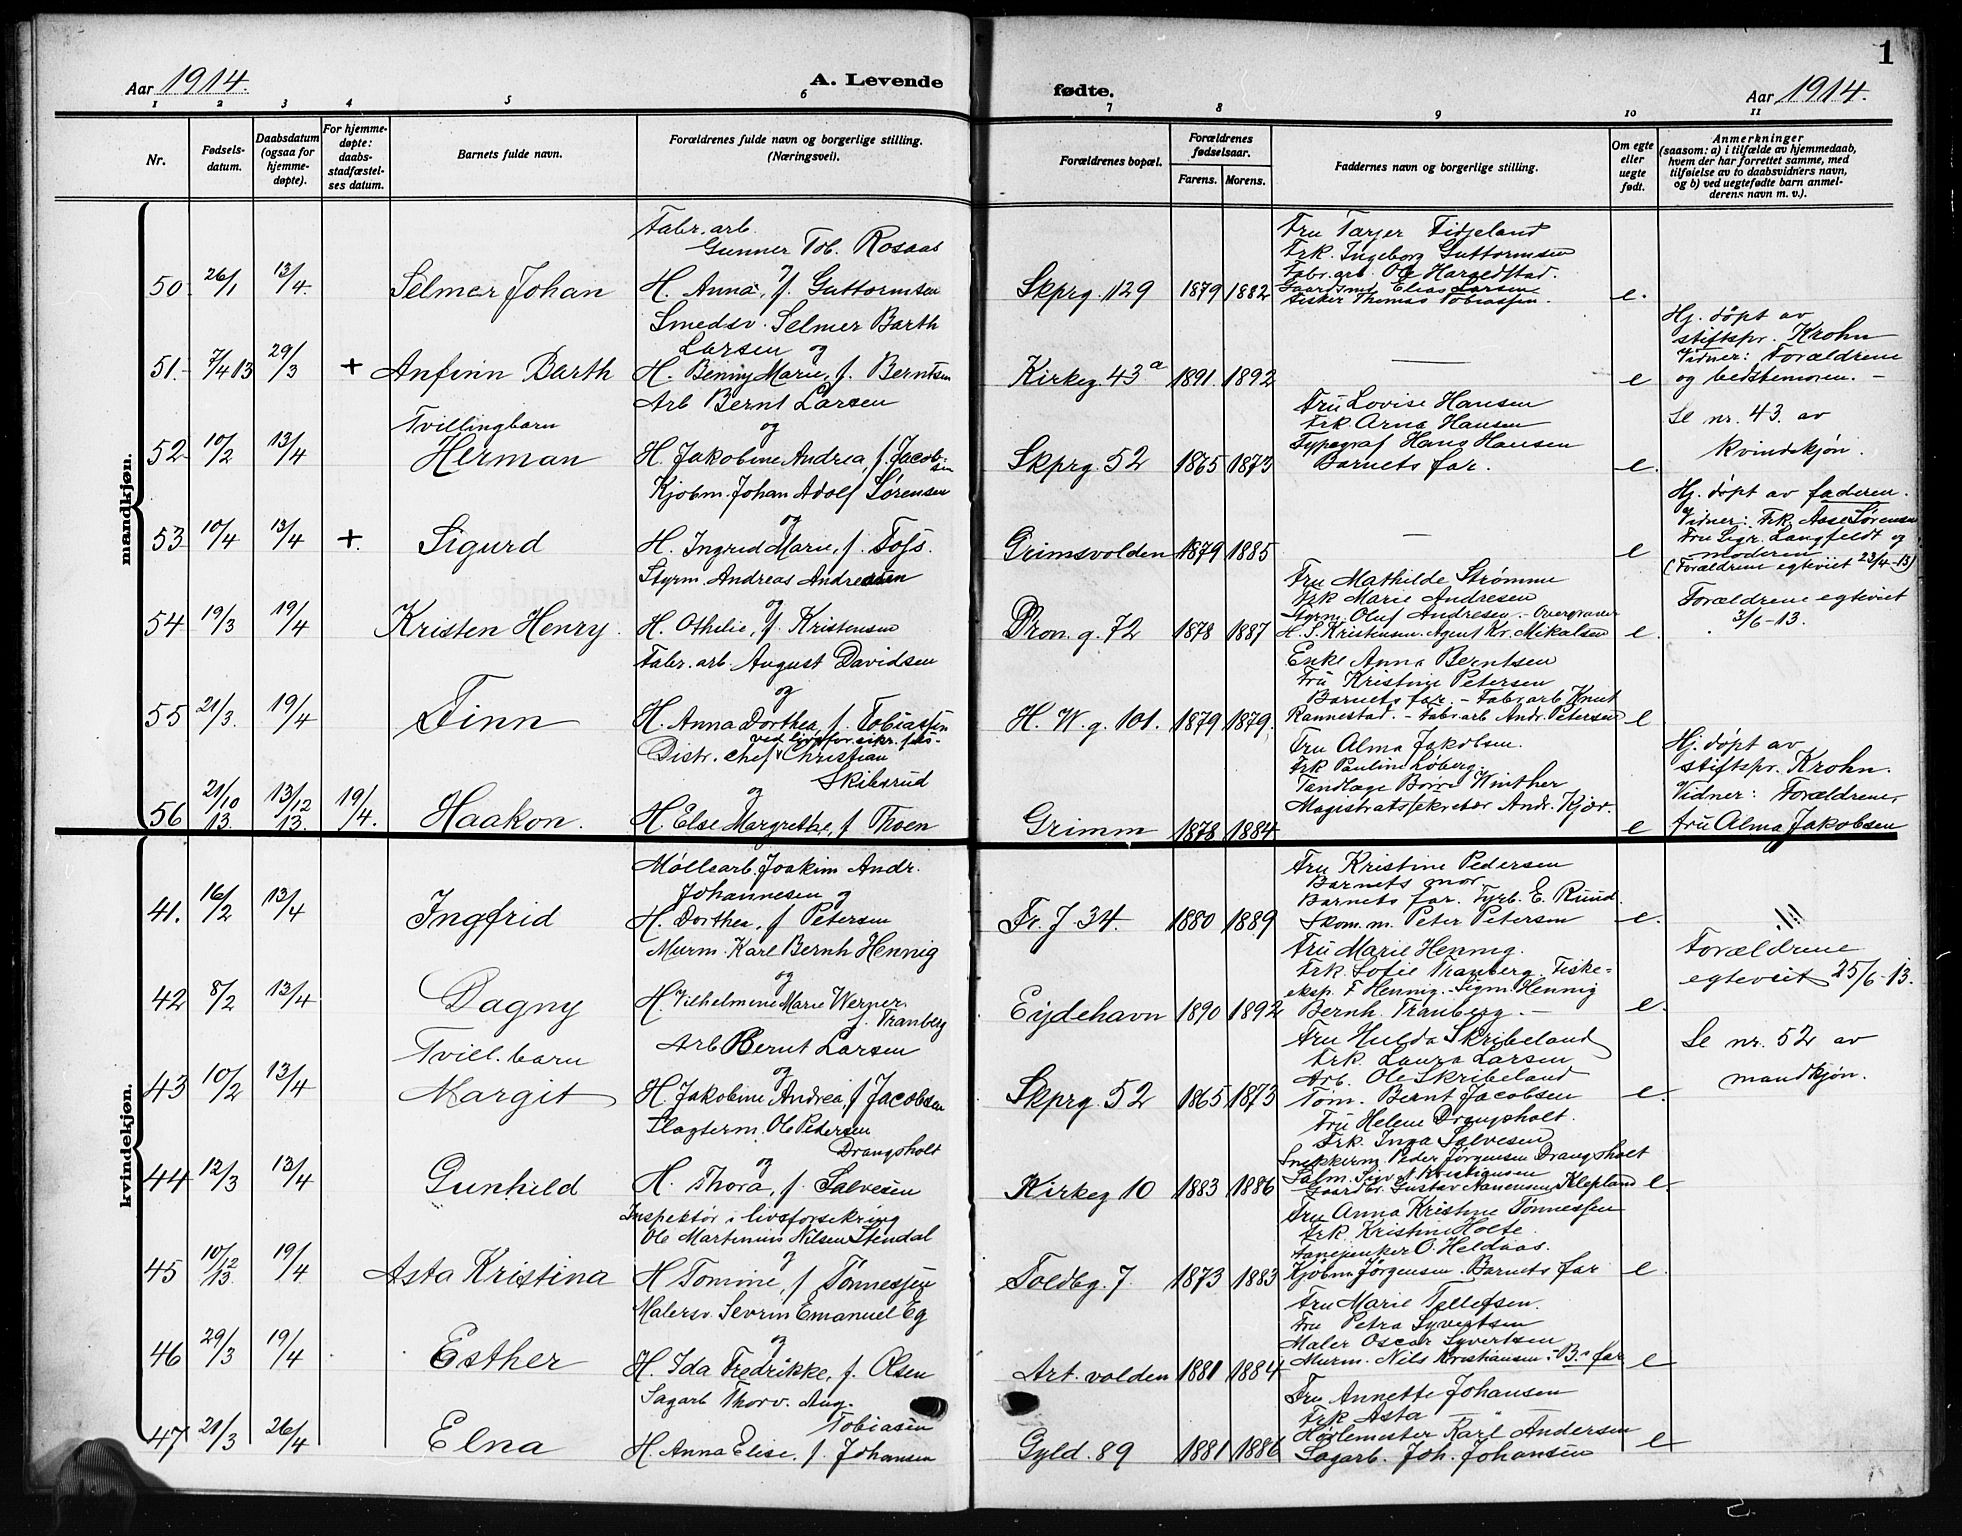 Aar 1914.
A. Levende
fødte.
Aar 1914.
1
1 2 3 4 5 6 7 8 9 10 11
Nr.
Fødsels-
datum.
Daabsdatum
(ogsaa for
hjemme-
døpte).
For hjemme-
døpte:
daabs-
stadfæstel-
ses datum.
Barnets fulde navn.
Forældrenes fulde navn og borgerlige stilling.
(Næringsvei).
Forældrenes bopæl.
Forældrenes
fødselsaar.
Farens. Morens.
Faddernes navn og borgerlige stilling.
Om egte
eller
uegte
født.
Anmerkninger
(saasom: a) i tilfælde av hjemmedaab,
hvem der har forrettet samme, med
tilføielse av to daabsvidners navn,
og b) ved uegtefødte barn anmel-
derens navn m. v.).
mandkjøn.
Fabr. arb.
Gunner Tob. Rosaas
og
50 26/1 13/4 Selmer Johan H. Anna, f. Guttormsen Skprg. 129 1879 1882 e.
Fru Tarjer Fidjeland
Frk. Ingeborg Guttormsen
Fabr. arb. Ole Haregdstad.
Gaardsmd. Elias Larsen
Fisker Thomas Tobiassen.
Smedsv. Selmer Barth
Larsen og
51. 7/4 13 29/3 + Anfinn Barth H. Benny Marie, f. Berntsen Kirkeg. 43a 1891 1892 — e
Hj. døpt av
stiftspr. Krohn
Vidner: Forældrene
og bedstemoren. –
Arb Bernt Larsen
og
Tvillingbarn
52 10/2 13/4 Herman H. Jakobine Andrea, f. Jacob-
sen Skprg 52 1865 1873 e.
Fru Lovise Hansen
Frk Arna Hansen
Typograf Hans Hansen
Barnets far.
Se nr. 43. av
kvindekjøn.
Kjøbm. Johan Adolf Sørensen
og
53 10/4 13/4 +. Sigurd H. Ingrid Marie, f. Foss. Grimsvolden 1879 1885 — e
Hj. døpt av faderen.
Vidner: Frk. Asse Sørensen
Fru Sigr. Langfeldt og
moderen
(Forældrene egteviet 23/4 -13)
Styrm. Andreas Andreasen
og
54 19/3 19/4 Kristen Henry. H. Othilie, f. Kristensen Dron. g. 72 1878 1887 e.
Fru Mathilde Strømme
Frk Marie Andresen
Styrm. Oluf Andresen. – Overgraver
H. S. Kristensen. Agent Kr. Mikalsen
Forældrene egteviet
3/6 -13.
Fabr. arb. August Davidsen
og
55 21/3. 19/4 Finn H. Anna Dorthea, f. Tobiassen H. W. g. 101. 1879 1879. e
Enke Anna Berntsen
Fru Kristine Petersen
Barnets far. – Fabr. arb Knut
Rannestad. – Fabr. arb Andr. Petersen
ved livsforsikr. sels-
Distr. chef Christian
Skibsrud
og
56 21/10 13. 13/12 13. 19/4. Haakon. H. Else Margrethe, f Thoen Grimm 1878 1884 e
Fru Alma Jakobsen.
Frk Pauline Løberg.
Tandlæge Børre Winther
Magistratssekretær Andr. Kjær.
Hj. døpt av
stiftspr. Krohn.
Vidner: Forældrene,
fru Alma Jakobsen
kvindekjøn.
Møllsarb. Joakim Andr.
Johannesen og
41. 16/2 13/4 Ingfrid H. Dorthea, f Petersen Fr. J 34. 1880 1889 e.
Fru Kristine Pedersen
Barnets mor
Barnets far. Fyrb. E. Ruud.
Skom. m. Peter Petersen
Murm. Karl Bernh Hennig
og
42 8/2 13/4 Dagny H. Vilhelmine Marie Werner
f. Tranberg Eydehavn 1890 1892 e.
Fru Marie Hennig.
Frk. Sofie Tranberg. Fiske-
eksp. F Hennig. – Sigm. Hennig
Bernh. Tranberg. –
Forældrene
egteviet 25/6 -13.
Arb Bernt Larsen
og
Tvill. barn
43 10/2 13/4 Margit H. Jakobine Andrea, f Jacobsen Skprg 52 1865 1873 e.
Fru Hulda Skribeland
Frk. Laura Larsen
Arb. Ole Skribeland
Tøm. Bernt Jacobsen
Se nr. 52 av
mandkjøn.
Slagterm. Ole Pedersen
Drangsholt
og
44 12/3 13/4 Gunhild H. Thora, f. Salvesen Kirkeg 10 1883 1886 e.
Fru Helene Drangsholt.
Frk. Inga Salvesen
Snekkerm Peder Jørgensen Drangsholt
Salm. Sivert Kristiansen
Gaardbr. Gustav Aanensen, Klepland
Inspektør i livsforsekring
Ole Martinius Nilsen Stendal
og
45 10/12 13. 19/4 Asta Kristina H Tomine, f Tønnessen Toldbg. 7. 1873 1883 e.
Fru Anna Kristine Tønnessen
Frk. Kristine Holte.
Fanejunker O. Heldaas.
Kjøbm. Jørgensen. Barnets far
Malersv. Sevrin Emanuel Eg
og
46 29/3 19/4 Esther H. Ida Fredrikke, f. Olsen Art. volden 1881 1884 e
Fru Marie Tellefsen.
Fru Petra Syvertsen
Maler Oscar Syvertsen
Murm. Nils Kristiansen. – B. far
Sagarb Thorv. Aug.
Tobiasen
47 21/3 26/4 Elna H. Anna Elise. f. Johansen Gyld. 89 1881 1886 e
Fru Annette Johansen
Frk Asta — " —
Høvlemester Karl Andersen
Sagarb. Joh. Johansen